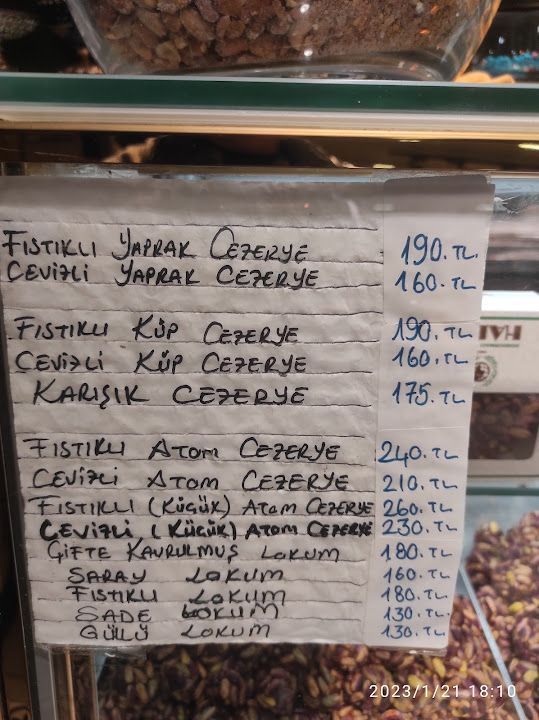 FISTIKLI YAPRAK CEZERYE 190.TL.
CEVİZLİ YAPRAK CEZERYE 160.TL
FISTIKLI KÜP CEZERYE 190.TL
CEVİZLİ KÜP CEZERYE 160.TL
KARIŞIK CEZERYE 175.TL
FISTIKLI ATOM CEZERYE 240.TL
CEVİZLİ ATOM CEZERYE 210.TL
FISTIKLI (KÜÇÜK) ATOM CEZERYE 260.TL
CEVİZLİ (KÜÇÜK) ATOM CEZERYE 230.TL
ÇİFTE KAVRULMUŞ LOKUM 180.TL
SARAY LOKUM 160.TL
FISTIKLI LOKUM 180.TL
SADE LOKUM 130.TL
GÜLLÜ LOKUM 130.TL
2023/1/21 18:10